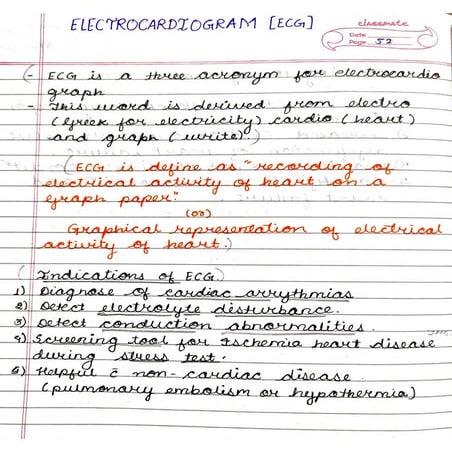 ELECTROCARDIOGRAM [ECG]
classmate
Date
Page 52
(- ECG is a three acronym for electrocardio
graph
- This word is derived from electro
(Greek for electricity) cardio (heart)
and graph (write).)
(ECG is define as "recording of
electrical activity of heart on a
graph paper."
(or)
Graphical representation of electrical
activity of heart.)
(Indications of ECG.)
1) Diagnose of cardiac arrythmias
2) Detect electrolyte disturbance.
3) Detect conduction abnormalities.
4) Screening tool for Ischemia heart disease
during stress test.
5) Helpful c̄ non-cardiac disease
(pulmonary embolism or hypothermia)